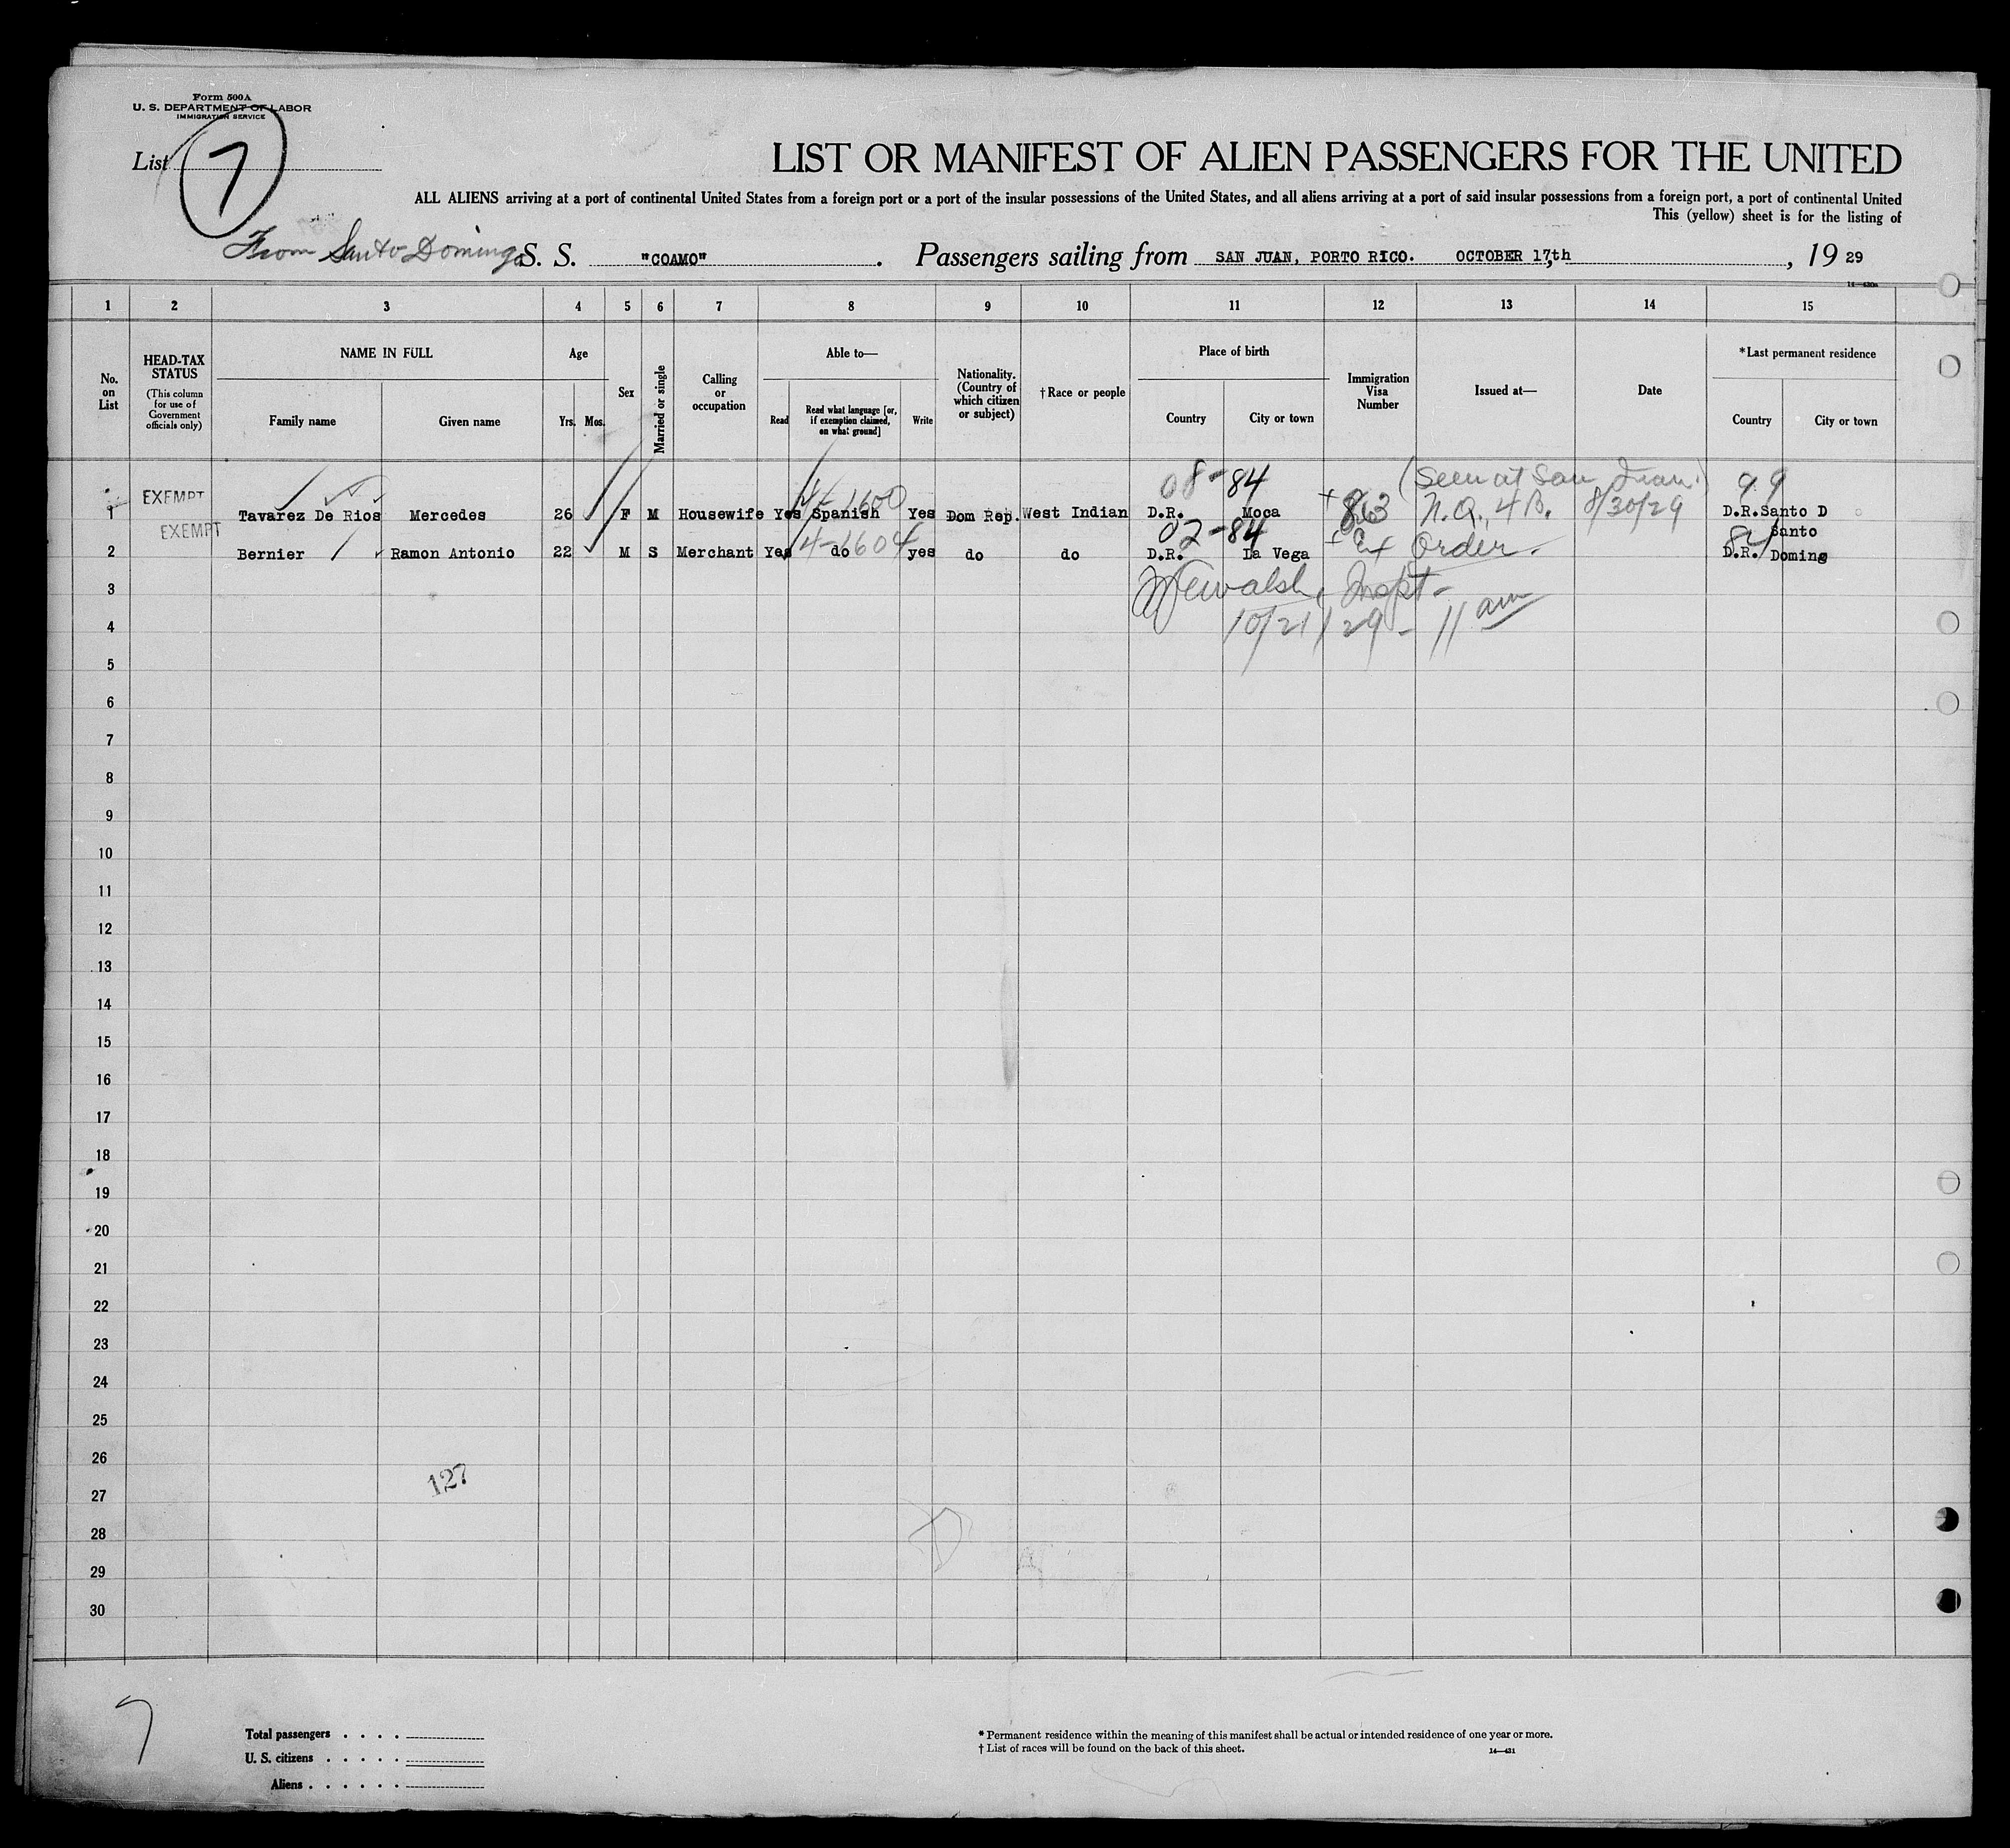 Form 500A
U. S. DEPARTMENT OF LABOR
IMMIGRATION SERVICE
List 7
LIST OR MANIFEST OF ALIEN PASSENGERS FOR THE UNITED
ALL ALIENS arriving at a port of continental United States from a foreign port or a port of the insular possessions of the United States, and all aliens arriving at a port of said insular possessions from a foreign port, a port of continental United
This (yellow) sheet is for the listing of
From Santo Domingo S. S. "COAMO". Passengers sailing from SAN JUAN, PORTO RICO. OCTOBER 17,th, 19 29
14—430a
1 2 3 4 5 6 7 8 9 10 11 12 13 14 15
No. on List
HEAD-TAX STATUS
(This column for use of Government officials only)
NAME IN FULL
Family name Given name
Age
Yrs. Mos.
Sex
Married or single
Calling or occupation
Able to—
Read
Read what language [or, if exemption claimed, on what ground]
Write
Nationality. (Country of which citizen or subject)
†Race or people
Place of birth
Country City or town
Immigration Visa Number
Issued at—
Date
*Last permanent residence
Country City or town
08-84 (Seen at San Juan.) 99
1 EXEMPT Tavarez De Rios Mercedes 26 F M Housewife Yes Spanish 4-1600 Yes Dom Rep. West Indian D.R. Moca 863 N.Q. 4B. 8/30/29 D.R. Santo D
02-84 84
2 EXEMPT Bernier Ramon Antonio 22 M S Merchant Yes do 4-1604 yes do do D.R. La Vega Ex Order. D.R. Santo Doming
3 Inspt-
4 10/21/29 - 11 am
5
6
7
8
9
10
11
12
13
14
15
16
17
18
19
20
21
22
23
24
25
26
127
27
28
29
30
7
Total passengers . . . .
U. S. citizens . . . . .
Aliens . . . . . .
* Permanent residence within the meaning of this manifest shall be actual or intended residence of one year or more.
† List of races will be found on the back of this sheet.
14—431